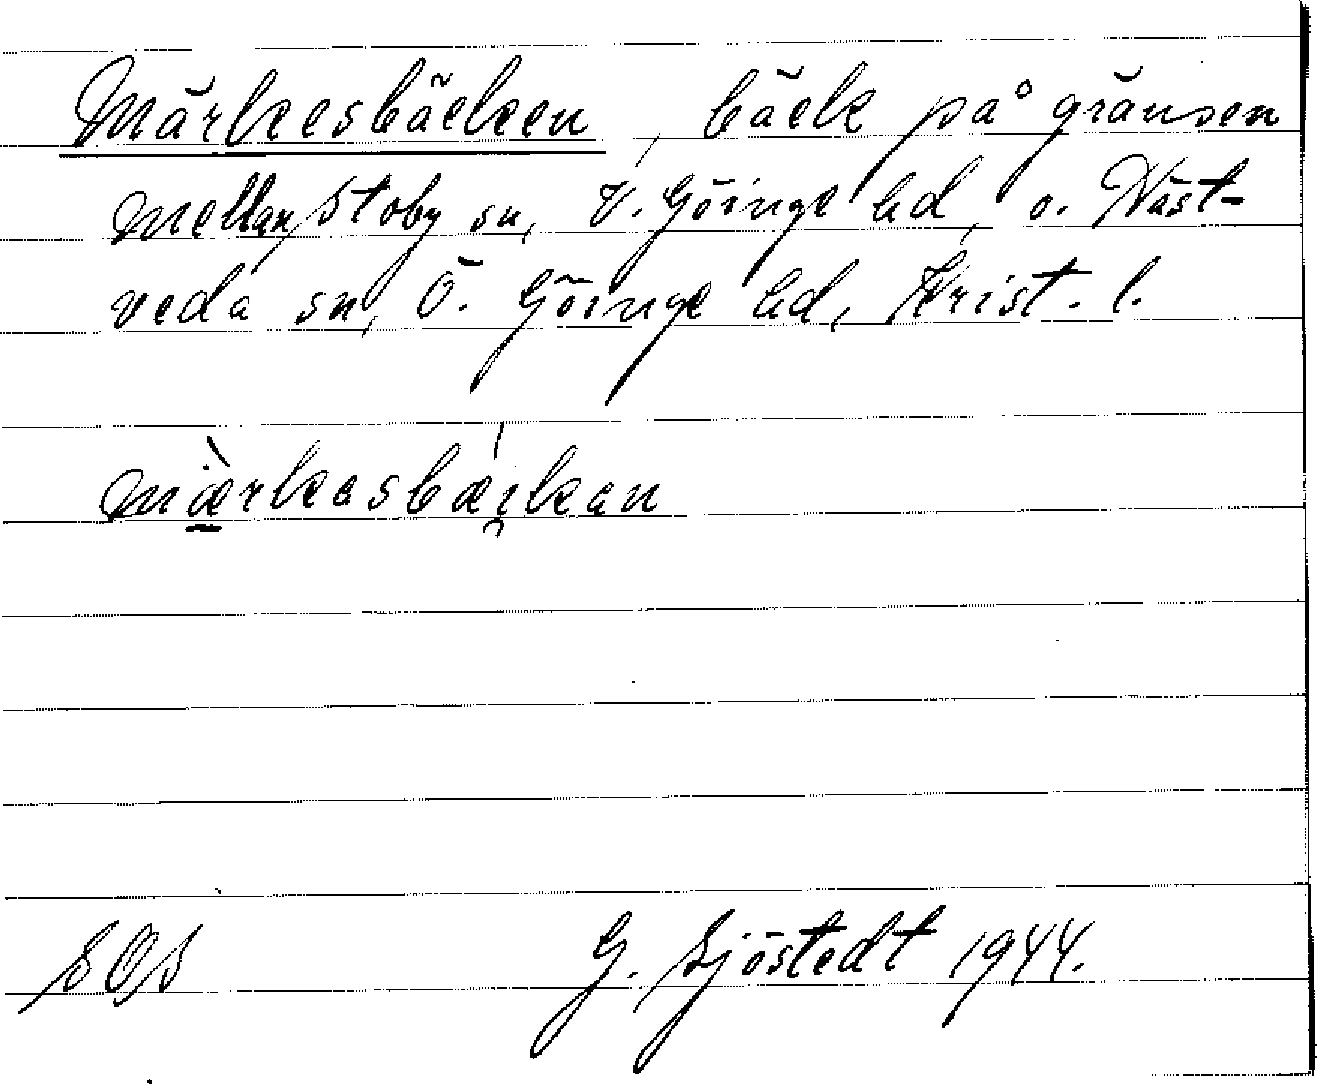 Märkesbäcken, bäck på gränsen
mellan Stoby sn, V. Göinge hd, o. Näst-
veda sn, Ö. Göinge hd, Krist. l.
mærkasbækan
SOS G. Sjöstedt 1944.